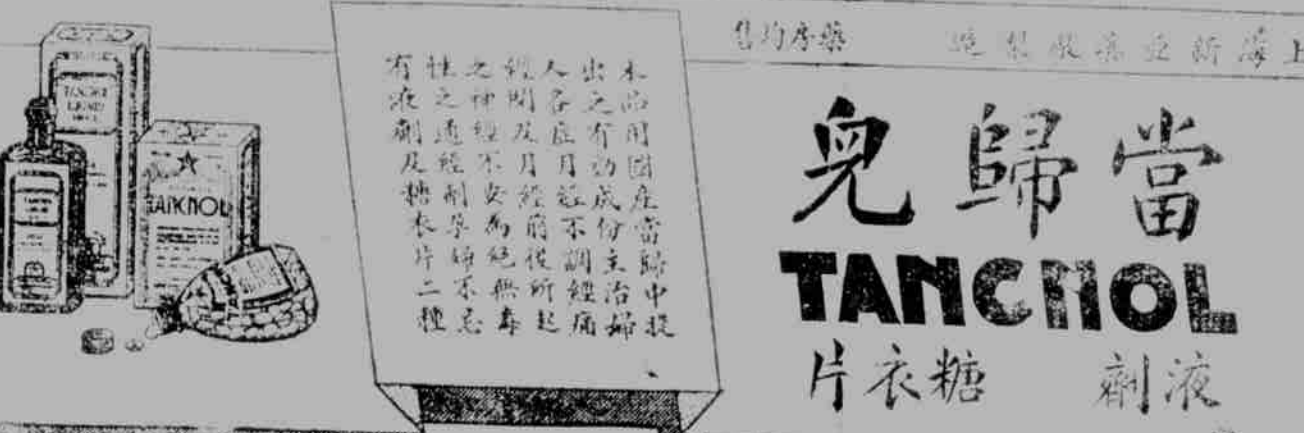 上海新亞藥廠製造
藥房均售
當歸兒
TANGNOL
液劑
糖衣片
本品用國產當歸中提
出之有効成份主治婦
人各症月經不調經痛
經閉及月經前後所起
之神經不安為絕無毒
性之通經劑孕婦不忌
有液劑及糖衣片二種
TANGNOL